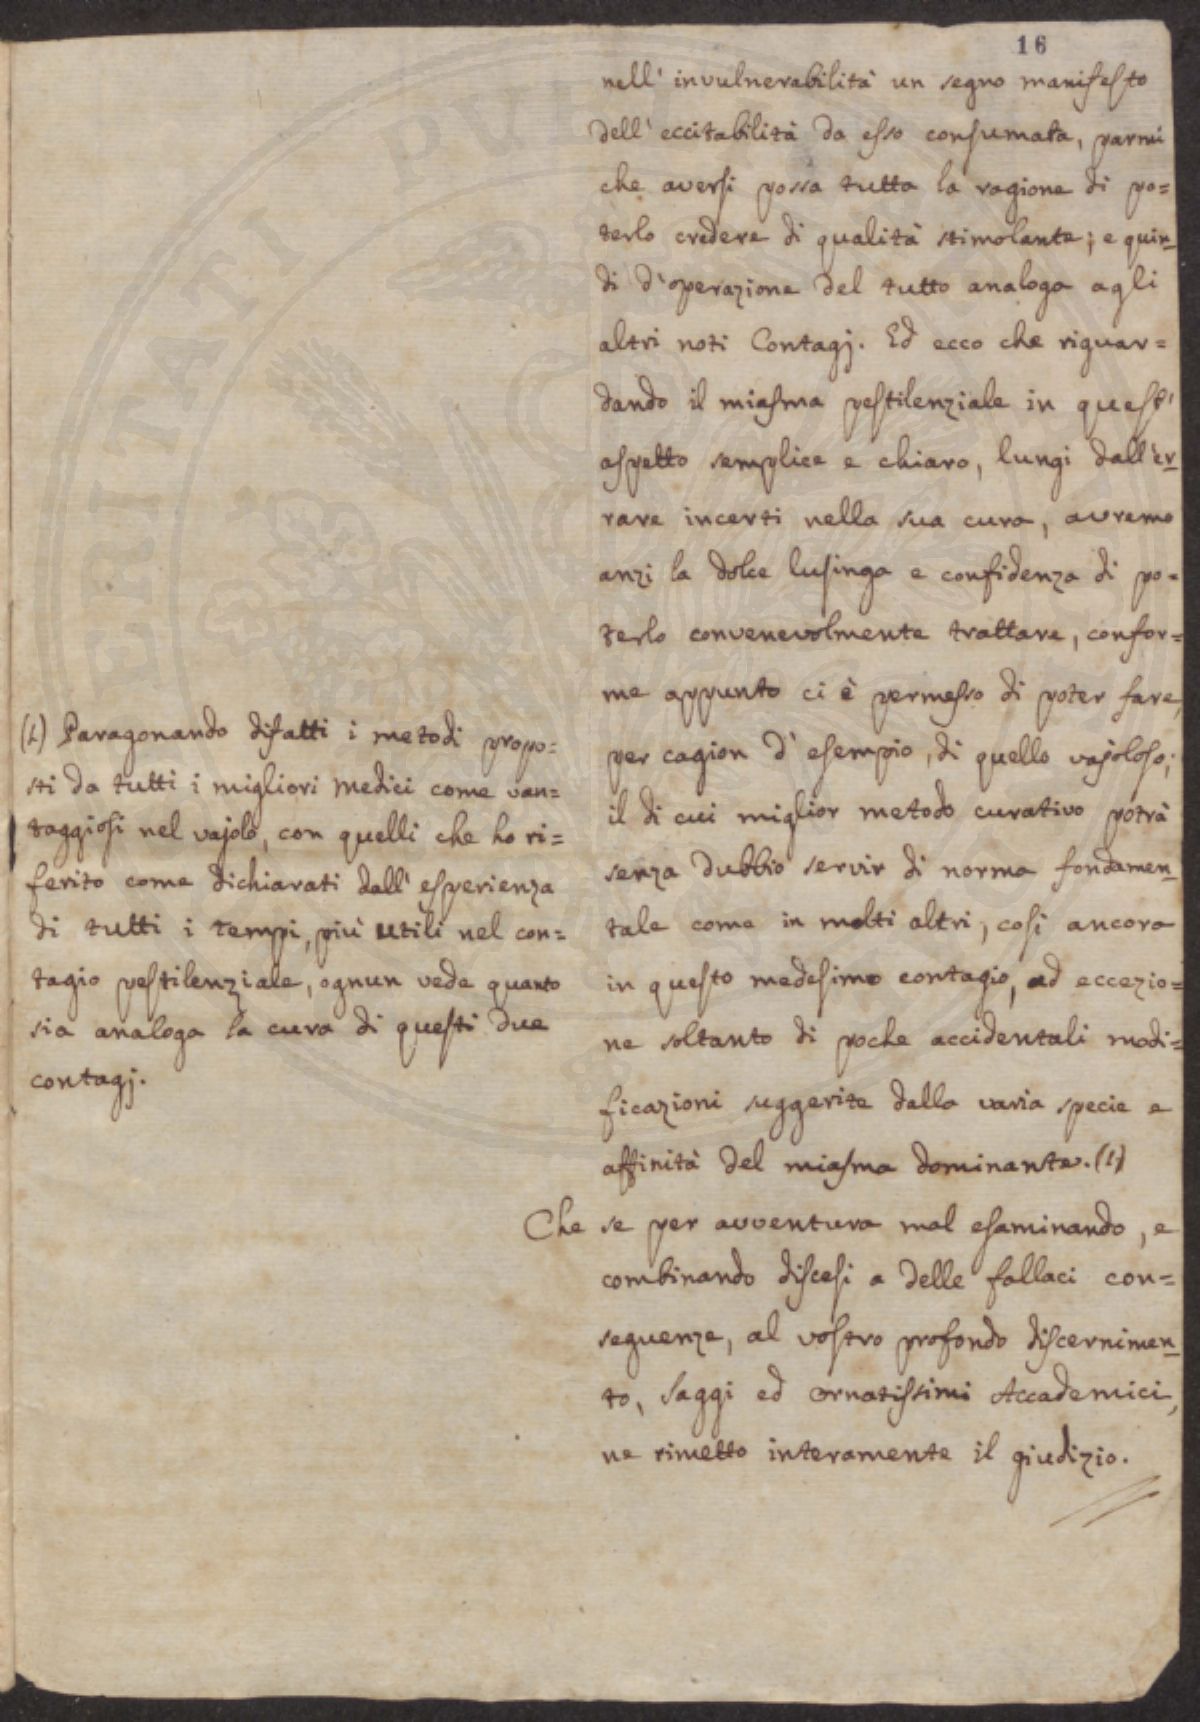 16
nell' invulnerabilità un segno manifesto
dell' eccitabilità da esso consumata, parmi
che aversi possa tutta la ragione di po=
terlo credere di qualità stimolante; e quin_
di d'operazione del tutto analoga agli
altri noti Contagj. Ed ecco che riguar=
dando il miasma pestilenziale in quest'
aspetto semplice e chiaro, lungi dall'er_
rare incerti nella sua cura, avremo
anzi la dolce lusinga e confidenza di po=
terlo convenevolmente trattare, confor=
me appunto ci è permesso di poter fare,
per cagion d' esempio, di quello vajoloso;
il di cui miglior metodo curativo potrà
senza dubbio servir di norma fondamen_
tale come in molti altri, così ancora
in questo medesimo contagio, ad eccezio=
ne soltanto di poche accidentali modi=
ficazioni suggerite dalla varia specie e
affinità del miasma dominante. (1)
Che se per avventura mal esaminando, e
combinando discesi a delle fallaci con=
seguenze, al vostro profondo discernimen_
to, Saggi ed ornatissimi Accademici,
ne rimetto interamente il giudizio.
(1) Paragonando difatti i metodi propo=
sti da tutti i migliori medici come van=
taggiosi nel vajolo, con quelli che ho ri=
ferito come dichiarati dall' esperienza
di tutti i tempi, più utili nel con=
tagio pestilenziale, ognun vede quanto
sia analoga la cura di questi due
contagj.